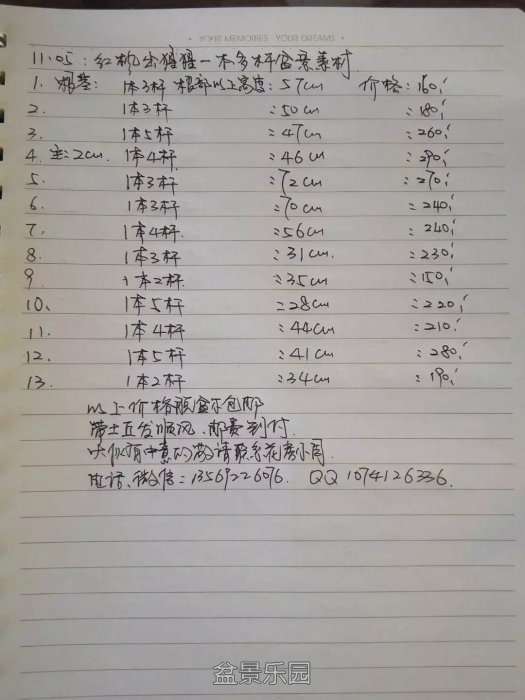 YOUR MEMORIES · YOUR DREAMS
11.05：红枫出猩猩一本多杆盆景素材
1. 根基：1本3杆 根部以上高度：57cm 价格：160.
2. 1本3杆 ：50cm ：180.
3. 1本5杆 ：47cm ：260.
4. 主：2cm. 1本4杆 ：46cm ：290.
5. 1本3杆 ：72cm ：270.
6. 1本3杆 ：70cm ：240.
7. 1本4杆. ：56cm ：240.
8. 1本3杆 ：31cm. ：230.
9 1本2杆 ：35cm ：150.
10. 1本5杆 ：28cm ：220.
11. 1本4杆 ：44cm ：210.
12. 1本5杆 ：41cm ：280.
13. 1本2杆 ：34cm ：190.
以上价格脱盆不包邮
带土球发顺风，邮费到付.
如有中意的请联系花房小周
电话、微信：13569226076. QQ 1074126336.
盆景乐园